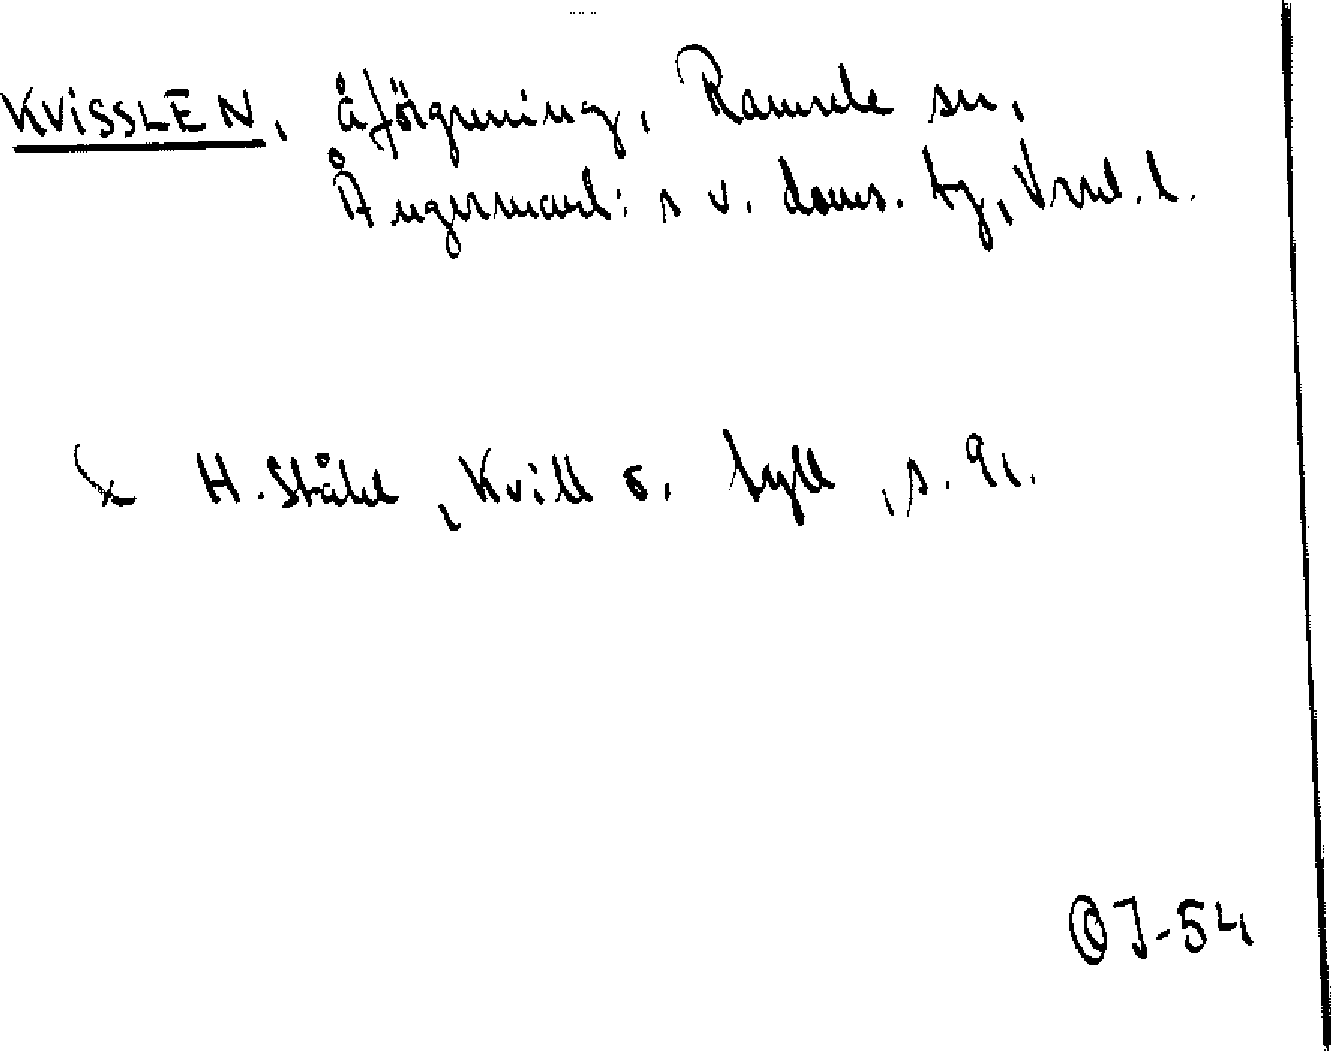 KVISSLEN, åförgrening, Ramsele sn,
Ångermanl: s v. doms. tg, Vrnl. l.
H. Ståhl, Kvill o. tyll, s. 91.
OJ-54